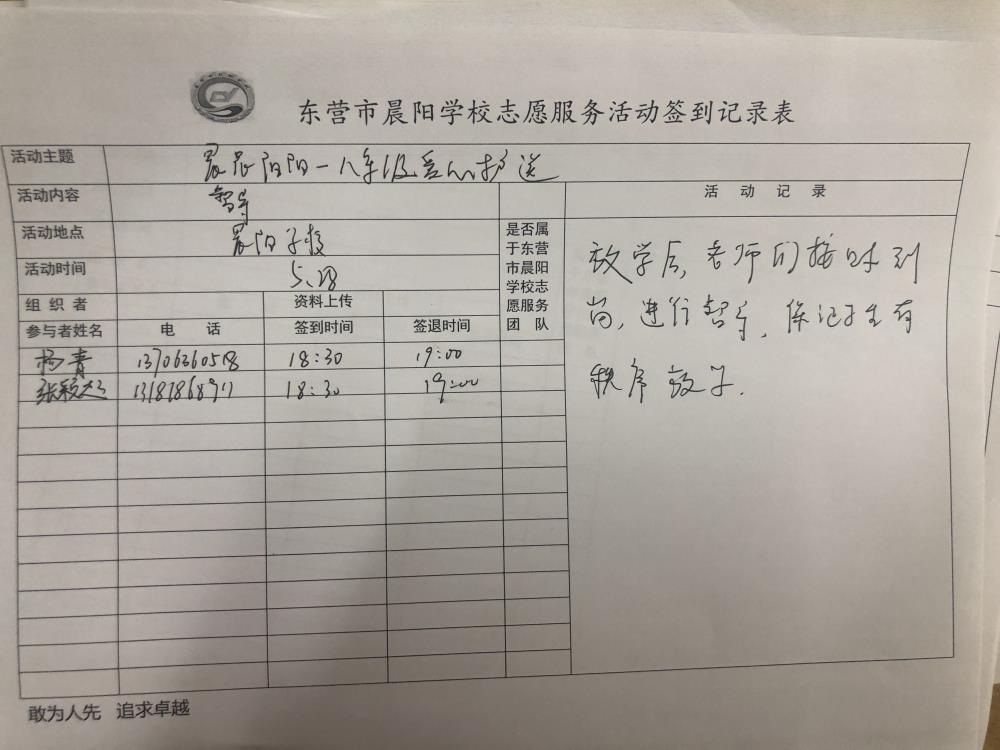 东营市晨阳学校志愿服务活动签到记录表
活动主题 晨晨阳阳一八年级爱心护送
活动内容 执勤
活动地点 晨阳学校
活动时间 5.28
组织者 资料上传
参与者姓名 电话 签到时间 签退时间
是否属
于东营
市晨阳
学校志
愿服务
团队
杨青 13706360518 18:30 19:00
18:30 19:00
活动记录
放学后,老师们按时到
岗,进行执勤,保证学生有
秩序放学.
敢为人先 追求卓越